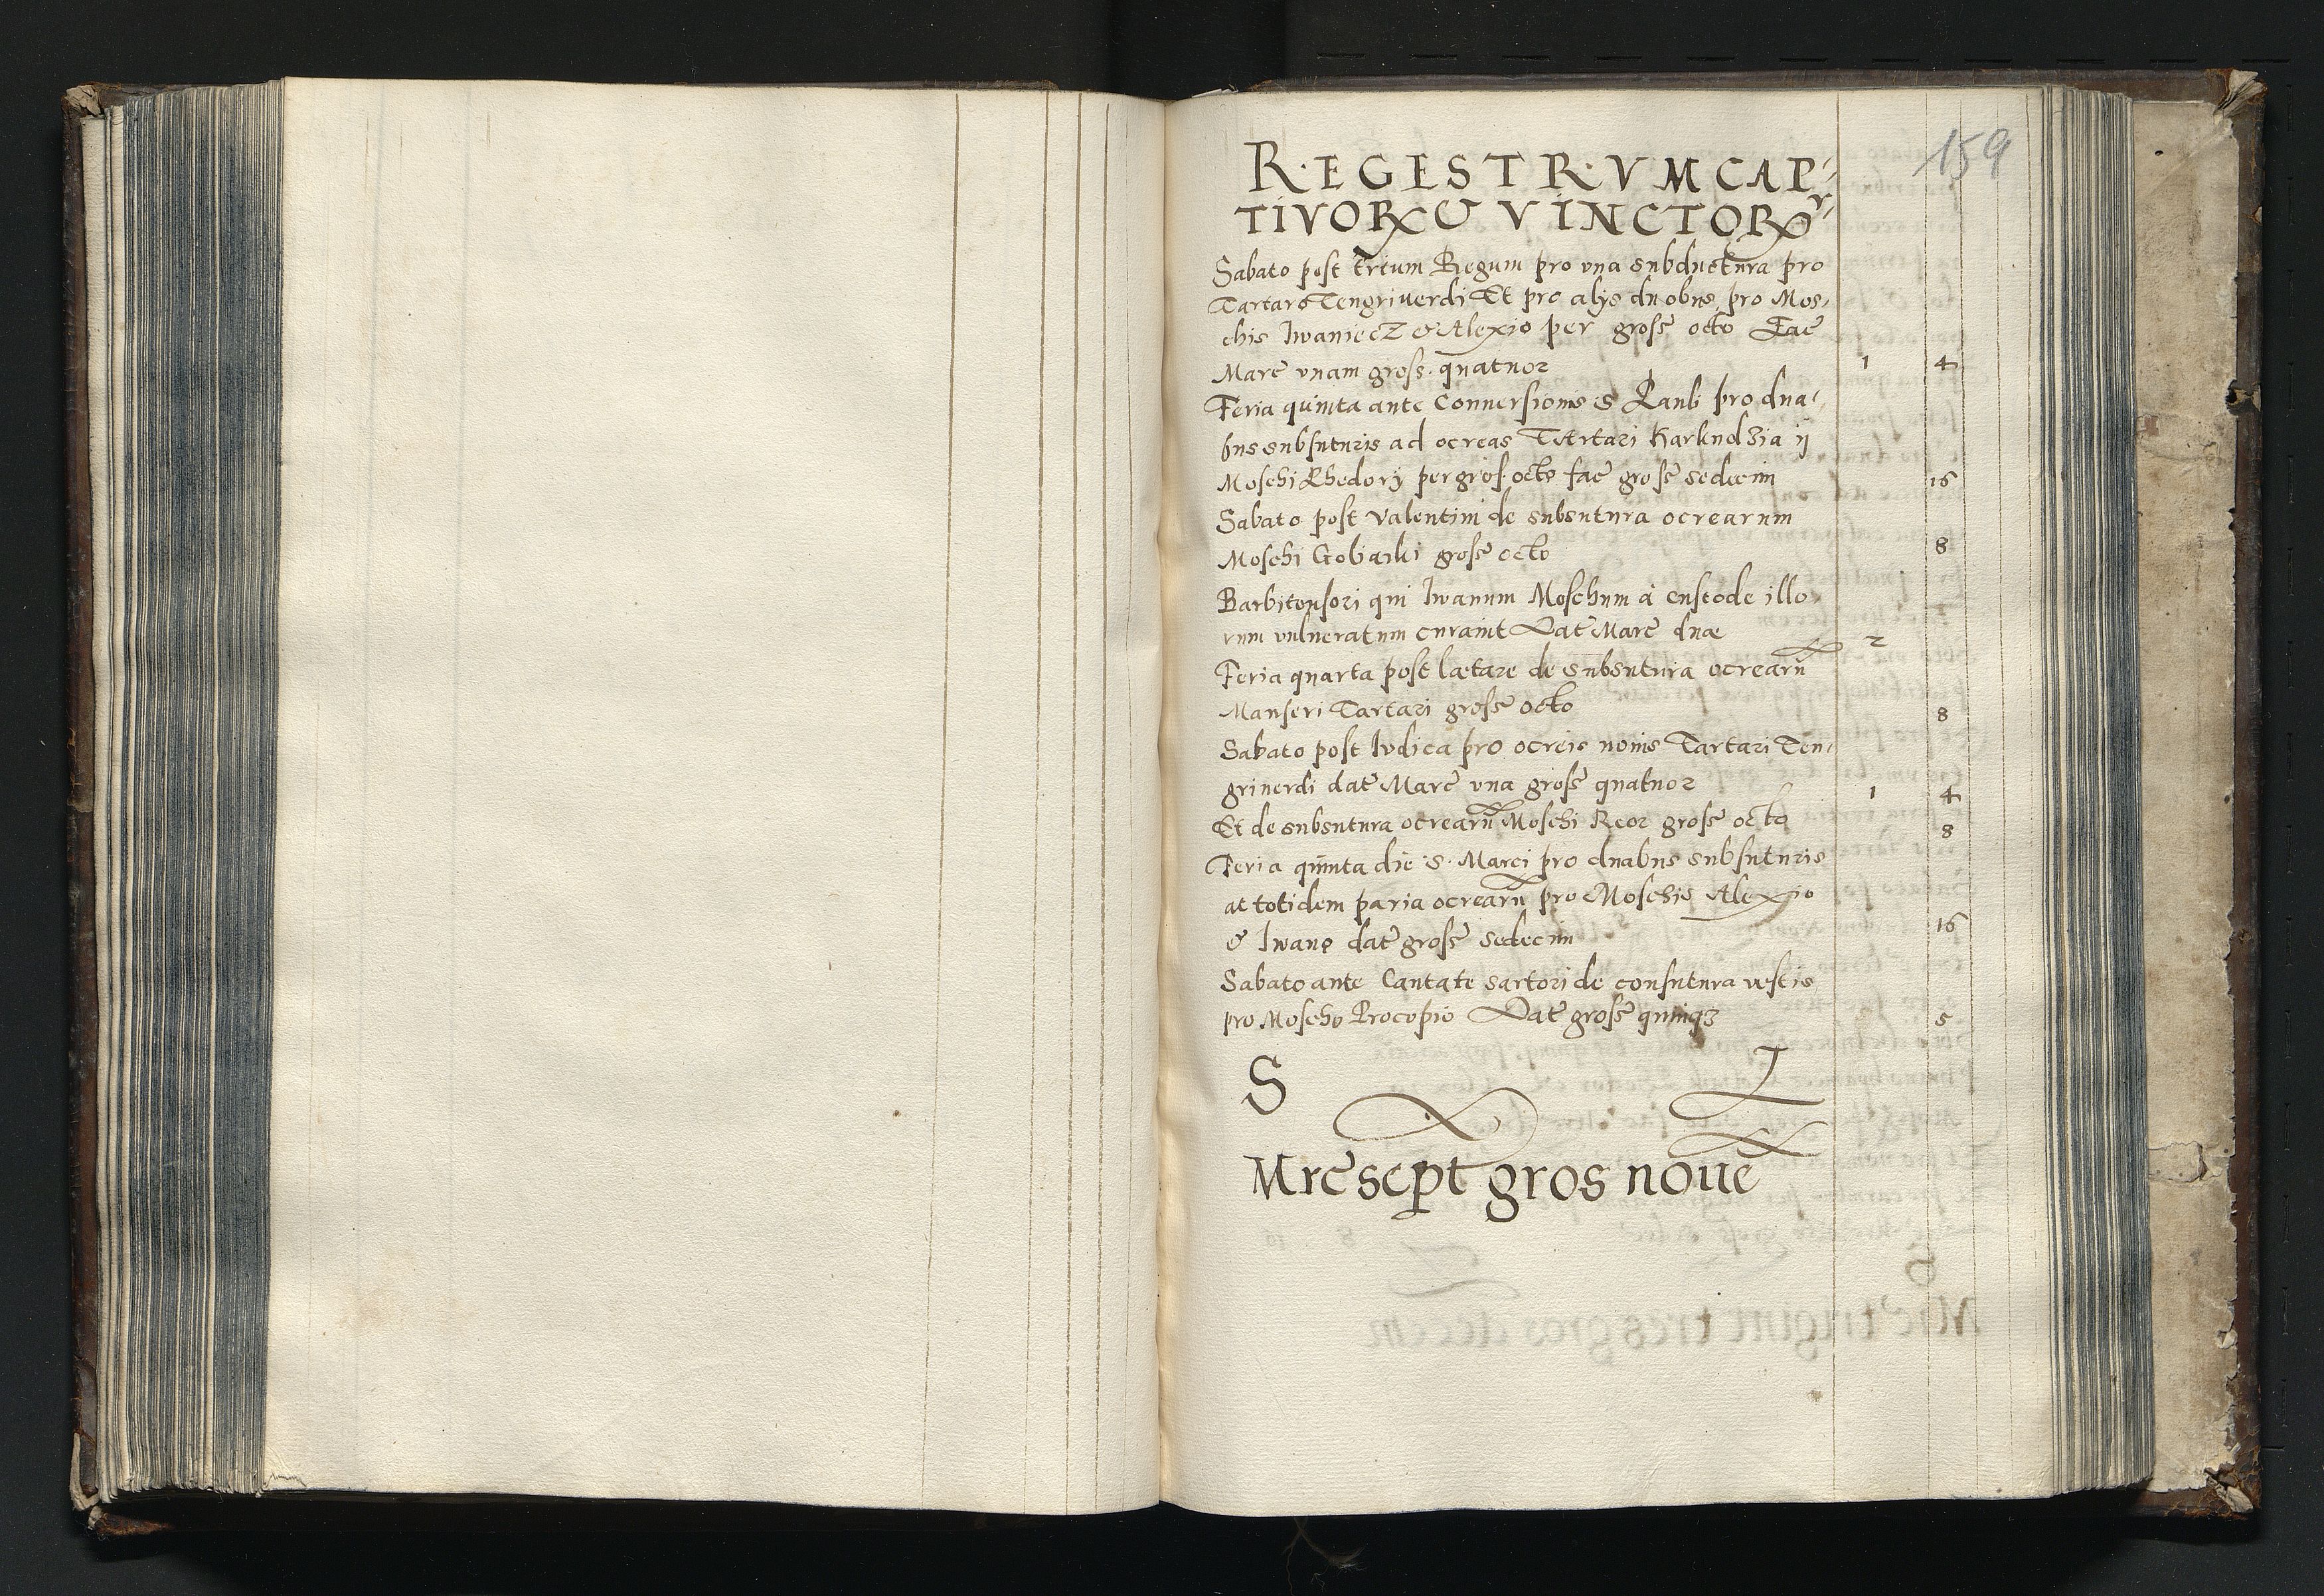 159
REGESTRVM CAP-
TIVORꝜ & VINCTORꝜ
Sabato post trium Regum pro vna subductura pro
Tartaro Tengriuerdi Et pro alijs duobus pro Mos-
chis Iwaniecz & Alexio per gross octo Fac
Marc vnam gross. quatuor 1 4
Feria quinta ante Conuersionis S Pauli pro dua-
bus subsuturis ad ocreas Tartari Karkudzia ij
Moschi Phedorij per gros. octo fac gross sedecim 16
Sabato post Valentini de subsutura ocrearum
Moschi Gobaiki gross octo 8
Barbitonsori qui Iwanum Moschum à custode illo
rum vulneratum curauit Dat Marc duæ 2
Feria quarta post lætare de subsutura ocrearū
Manseri Tartari gross octo 8
Sabato post Iudica pro ocreis nouis Tartari Ten-
griuerdi dat Marc vna gross quatuor 1 4
Et de subsutura ocrearū Moschi Reor gross octo 8
Feria quinta die S. Marci pro duabus subsuturis
at totidem paria ocrearū pro Moschis Alexio
& Iwano dat gross sedecim 16
Sabato ante Cantate sartori de consutura vestis
pro Moscho Procopio Dat gross quinqȝ 5
S
Mrc sept gros noue